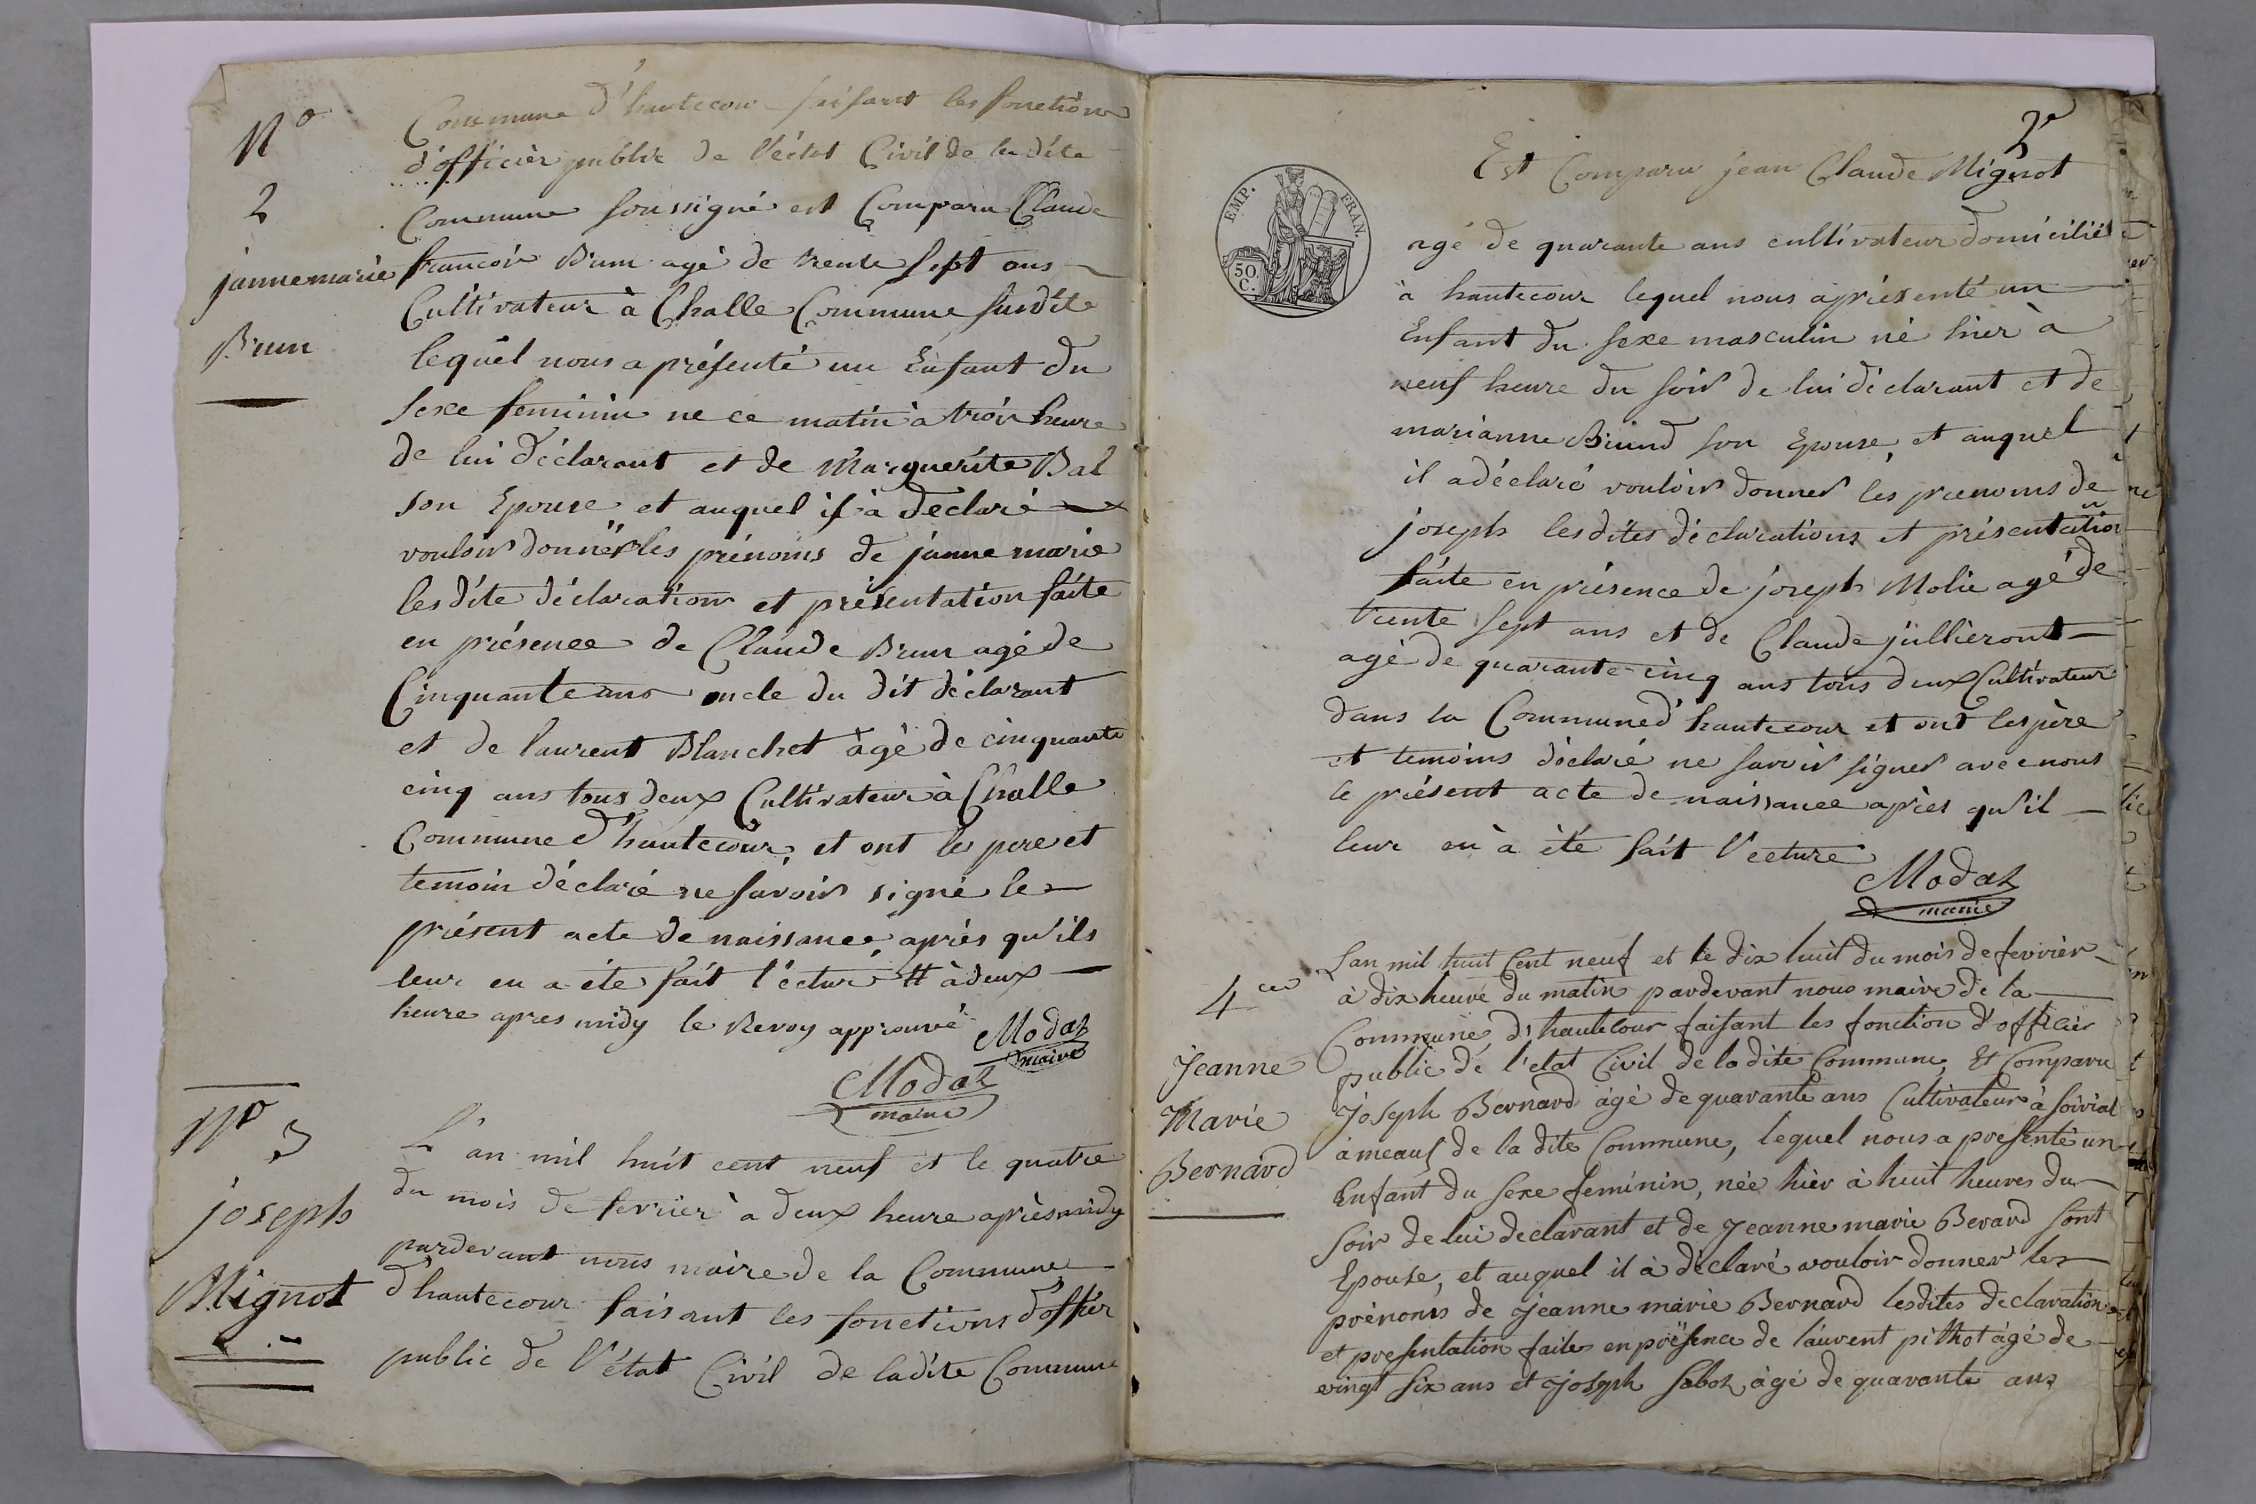 Commune d'hautecour faisant les fonction
N°
d'officier public de l'état Civil de la dite
2
Commune soussigné est Comparu Claude
janne marie
francois Brun agé de trente sept ans
Cultivateur à Challe Commune susdite
Brun
lequel nous a présenté un Enfant du
sexe feminin ne ce matin à trois heure
de lui déclarant et de Marguerite Bal
son Epouse et auquel il à declaré
vouloir donner les prénoms de janne marie
les dite déclaration et présentation faite
en présence de Claude Brun agé de
Cinquante ans oncle du dit déclarant
et de laurent Blanchet àgé de cinquante
cinq ans tous deux Cultivateur à Challe
Commune d'hautecour, et ont le pere et
temoin déclaré ne savoir signé le
présent acte de naissance, après qu'ils
leur en a éte fait l'ecture # à deux
heure apres midy le Renvoy approuvé
Modaz
maire
Modaz
maire
N° 3
L'an mil huit cent neuf et le quatre
du mois de fevrier à deux heure après midy
joseph
pardevant nous maire de la Commune
Mignot
d'hautecour faisant les fonctions d'offier
public de l'état Civil de ladite Commune
2e
EMP. FRAN.
50 C.
Est Comparu jean Claude Mignot
agé de quarante ans cultivateur domicilié
à hautecour lequel nous à présenté un
Enfant du sexe masculin né hier à
neuf heure du soir de lui déclarant et de
marianne Brund son Epouse, et auquel
il a déclaré vouloir donner les prenoms de
joseph les dites déclarations et présentation
faite en présence de joseph Molie agé de
trente sept ans et de Claude jullieront
agé de quarante cinq ans tous deux Cultivateur
dans la Commune d'hautecour et ont les père
et temoins déclaré ne savoir signer avec nous
le présent acte de naissance après qu'il
leur en à été fait l'ecture
Modaz
maire
Lan mil huit Cent neuf et le dix huit du mois de fevrier
4
à dix heure du matin pardevant nous maire de la
Commune d'hautecour faisant les fonction d'officier
Jeanne
public de l'etat Civil de la dite Commune, Est Comparu
Marie
Joseph Bernard àgé de quarante ans Cultivateur à
Bernard
àmeaus de la dite Commune, lequel nous a presenté un
Enfant du sexe feminin, née hier à huit heures du
soir de lui declarant et de Jeanne marie Berard sont
Epouse, et auquel il à déclaré vouloir donner les
prénoms de Jeanne marie Bernard lesdites declaration
et presentation faites en présence de laurent pithot àgé de
vingt six ans et Joseph àgé de quarante ans